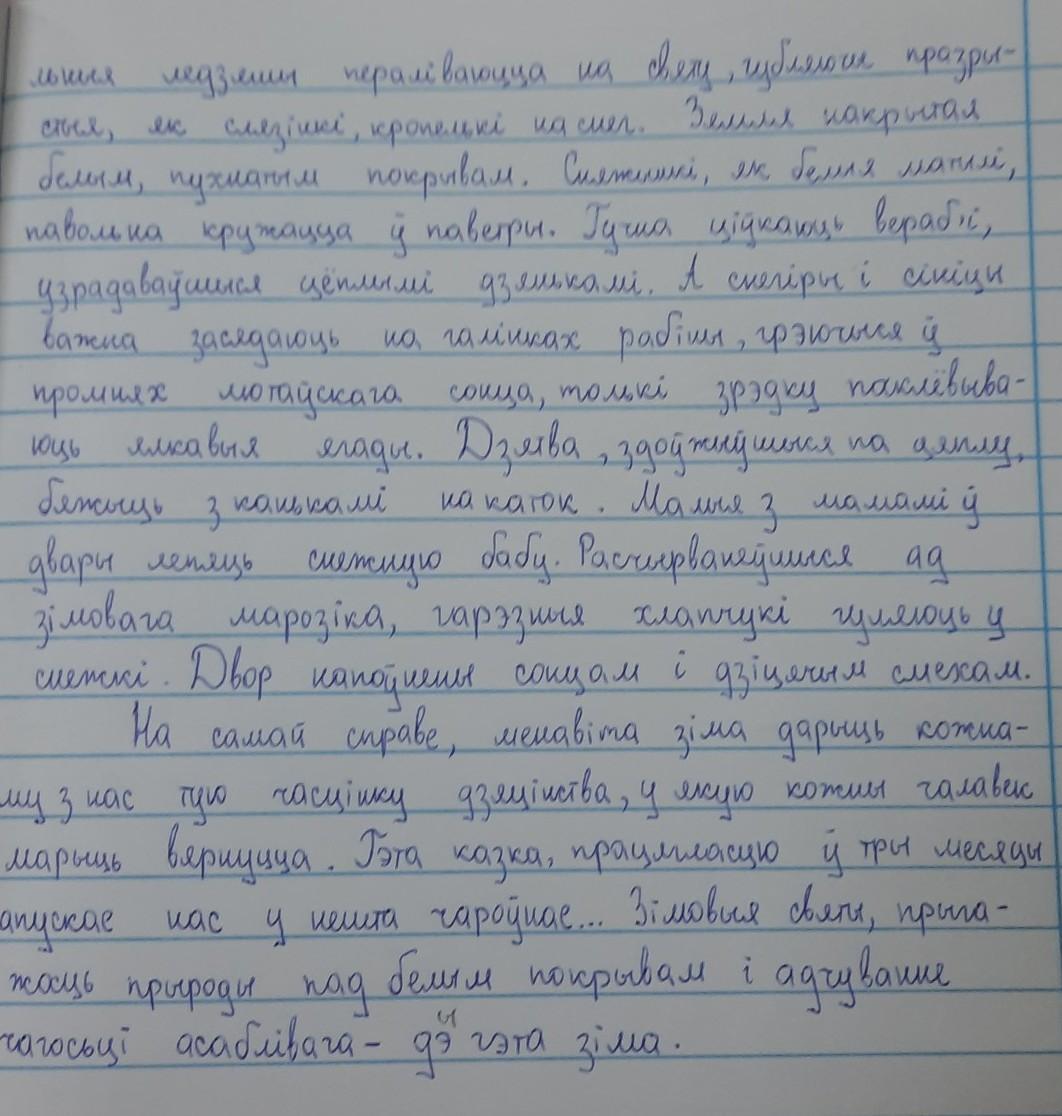 льныя ледзяшы пераліваюцца на святу, губляючы празры-
стыя, як слязінкі, кропелькі на снег. Зямля накрытая
белым, пухнатым покрывам. Сняжынкі, як белыя матылі,
павольна кружацца ў паветры. Гучна ціўкаюць вераб'і,
узрадаваўшыся цёплымі дзянькамі. А снегіры і сініцы
важна засядаюць на галінках рабіны, грэючыся ў
промнях лютаўскага сонца, толькі зрэдку паклёвыва-
юць ялкавыя ягады. Дзятва, здоўжыўшыся па цяплу,
бяжыць з канькамі на каток. Малыя з мамамі ў
двары лепяць снежную бабу. Расчырванеўшыся ад
зімовага марозіка, гарэзныя хлапчукі гуляюць у
снежкі. Двор напоўнены сонцам і дзіцячым смехам.
На самай справе, менавіта зіма дарыць кожна-
му з нас тую часцінку дзяцінства, у якую кожны чалавек
марыць вярнуцца. Гэта казка, працягласцю ў тры месяцы
апускае нас у нешта чароўнае... Зімовыя святы, прыга-
жосць прыроды пад белым покрывам і адчуванне
чагосьці асаблівага – ды гэта зіма.